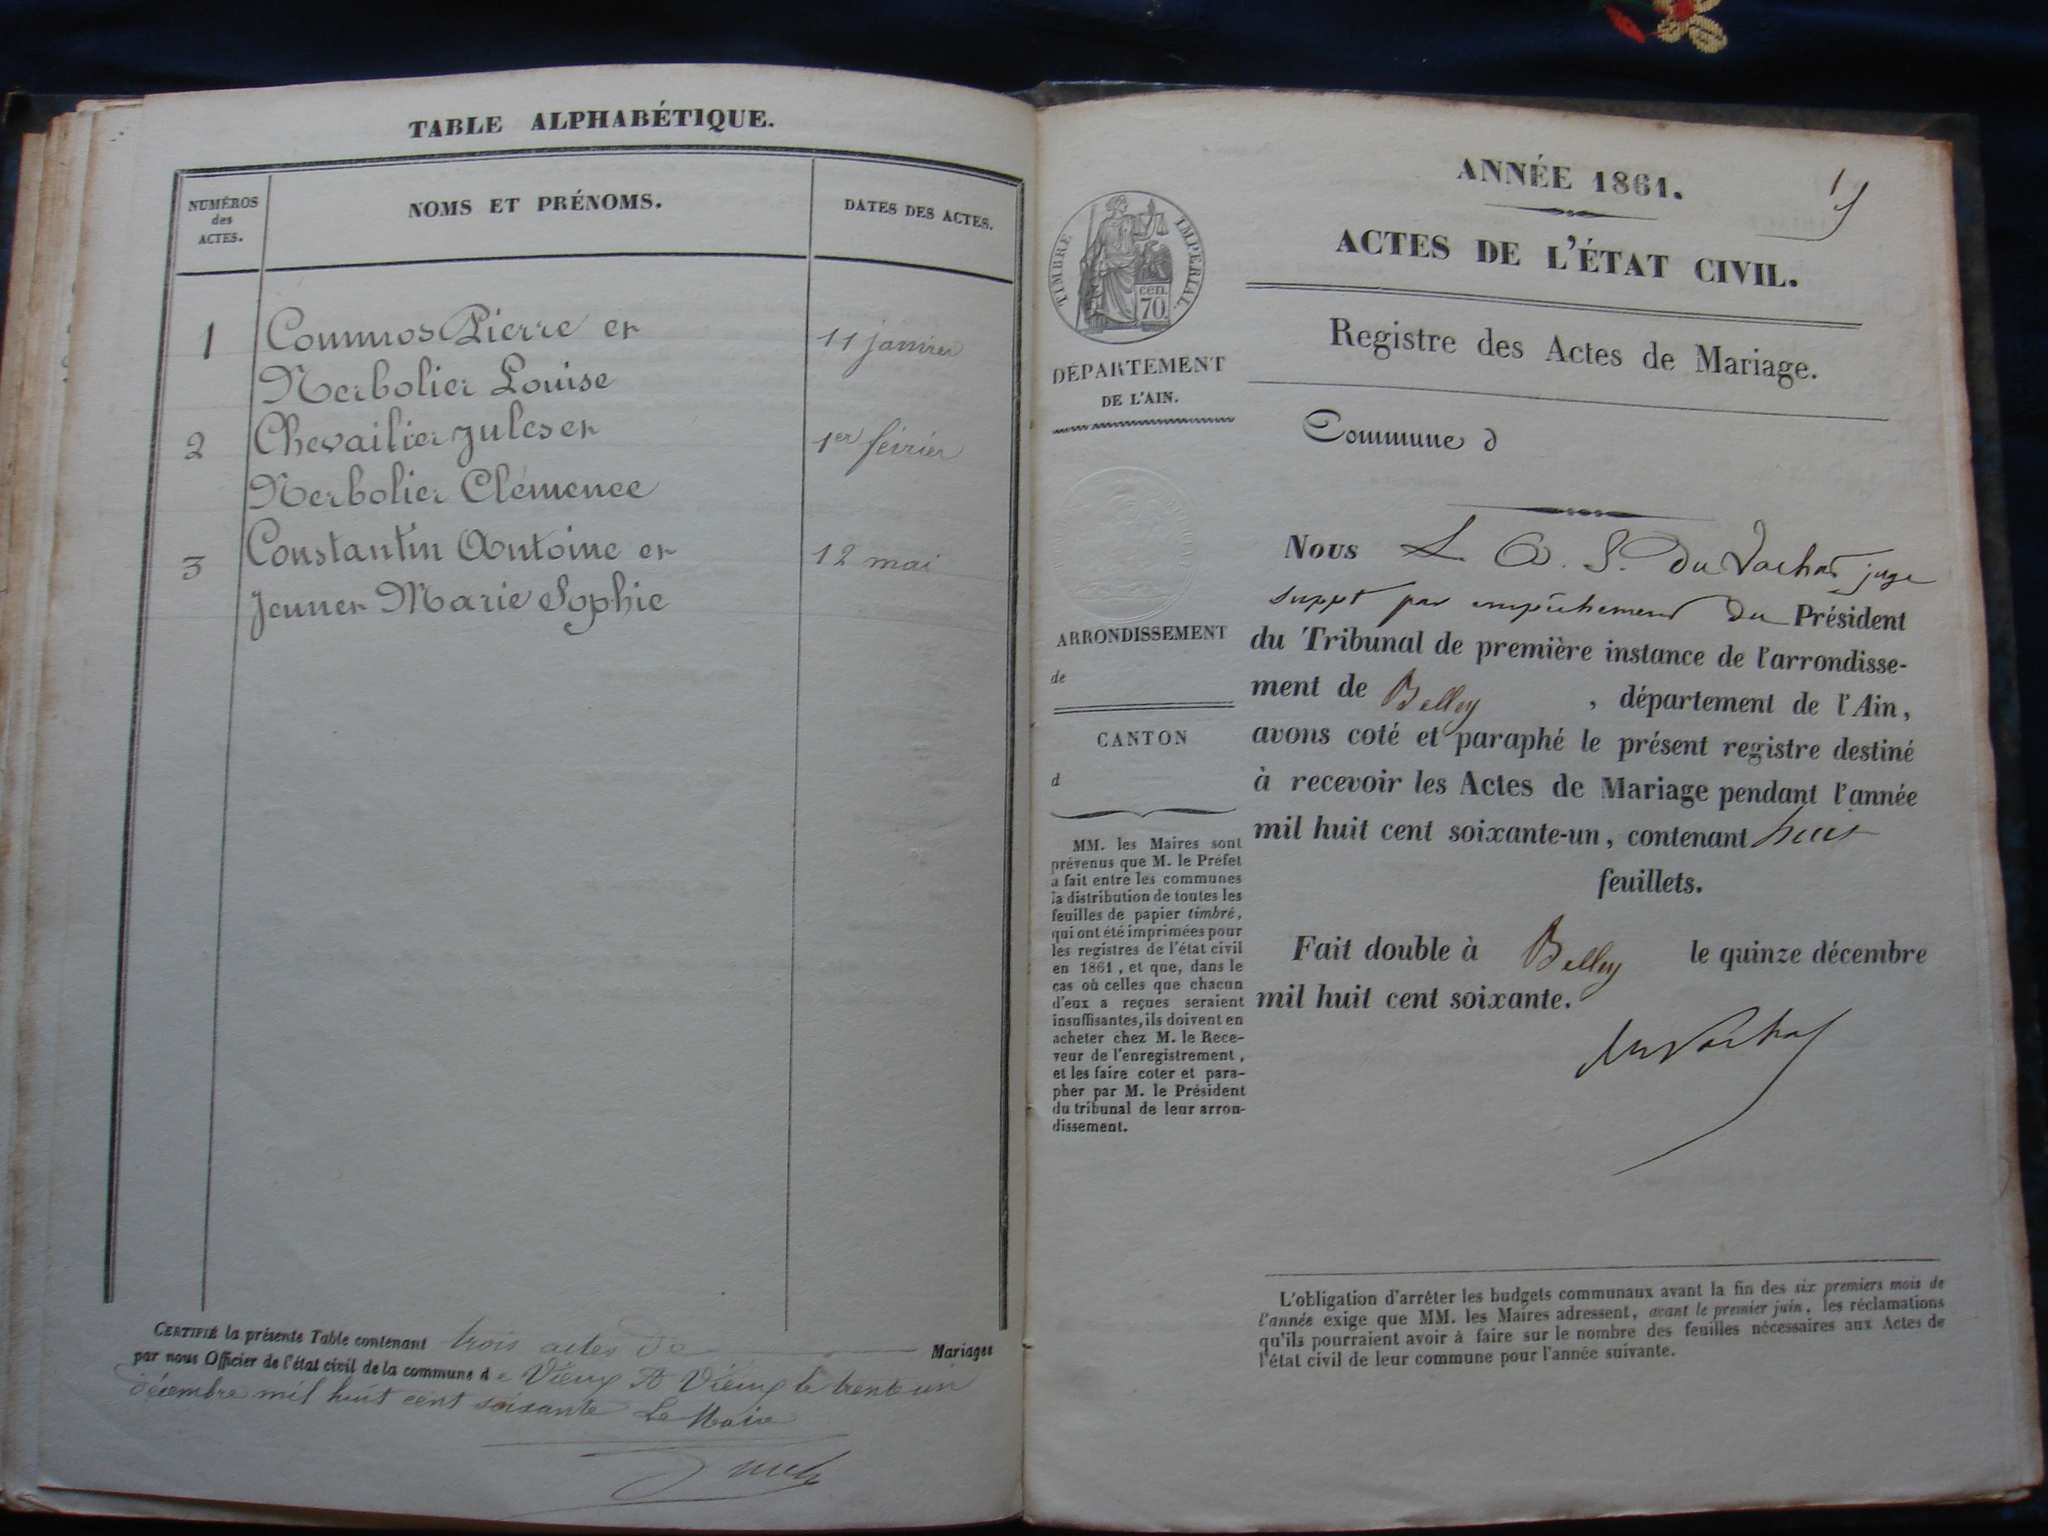 TABLE ALPHABÉTIQUE.
NUMÉROS
des
ACTES.
NOMS ET PRÉNOMS.
DATES DES ACTES.
1 Commos Pierre et 11 janvier
Nerbolier Louise
2 Chevailier Jules et 1er févrièr
Nerbolier Clémence
3 Constantin Antoine et 12 mai
Jeunet Marie Sophie
CERTIFIÉ la présente Table contenant trois actes de Mariages
par nous Officier de l'état civil de la commune de Vieux A Vieux le trente un
décembre mil huit cent soixante Le Maire
ANNÉE 1861.
1
ACTES DE L'ÉTAT CIVIL.
Registre des Actes de Mariage.
TIMBRE IMPÉRIAL
cen.
70.
DÉPARTEMENT
DE L'AIN.
ARRONDISSEMENT
de
CANTON
d
MM. les Maires sont
prévenus que M. le Préfet
a fait entre les communes
la distribution de toutes les
feuilles de papier timbré,
qui ont été imprimées pour
les registres de l'état civil
en 1861, et que, dans le
cas où celles que chacun
d'eux a reçues seraient
insuffisantes, ils doivent en
acheter chez M. le Rece-
veur de l'enregistrement,
et les faire coter et para-
pher par M. le Président
du tribunal de leur arron-
dissement.
Commune d
Nous L. A. S. Du Vachat juge
suppt par empêchement du Président
du Tribunal de première instance de l'arrondisse-
ment de Belley, département de l'Ain,
avons coté et paraphé le présent registre destiné
à recevoir les Actes de Mariage pendant l'année
mil huit cent soixante-un, contenant huit
feuillets.
Fait double à Belley le quinze décembre
mil huit cent soixante.
du Vachat
L'obligation d'arrêter les budgets communaux avant la fin des six premiers mois de
l'année exige que MM. les Maires adressent, avant le premier juin, les réclamations
qu'ils pourraient avoir à faire sur le nombre des feuilles nécessaires aux Actes de
l'état civil de leur commune pour l'année suivante.